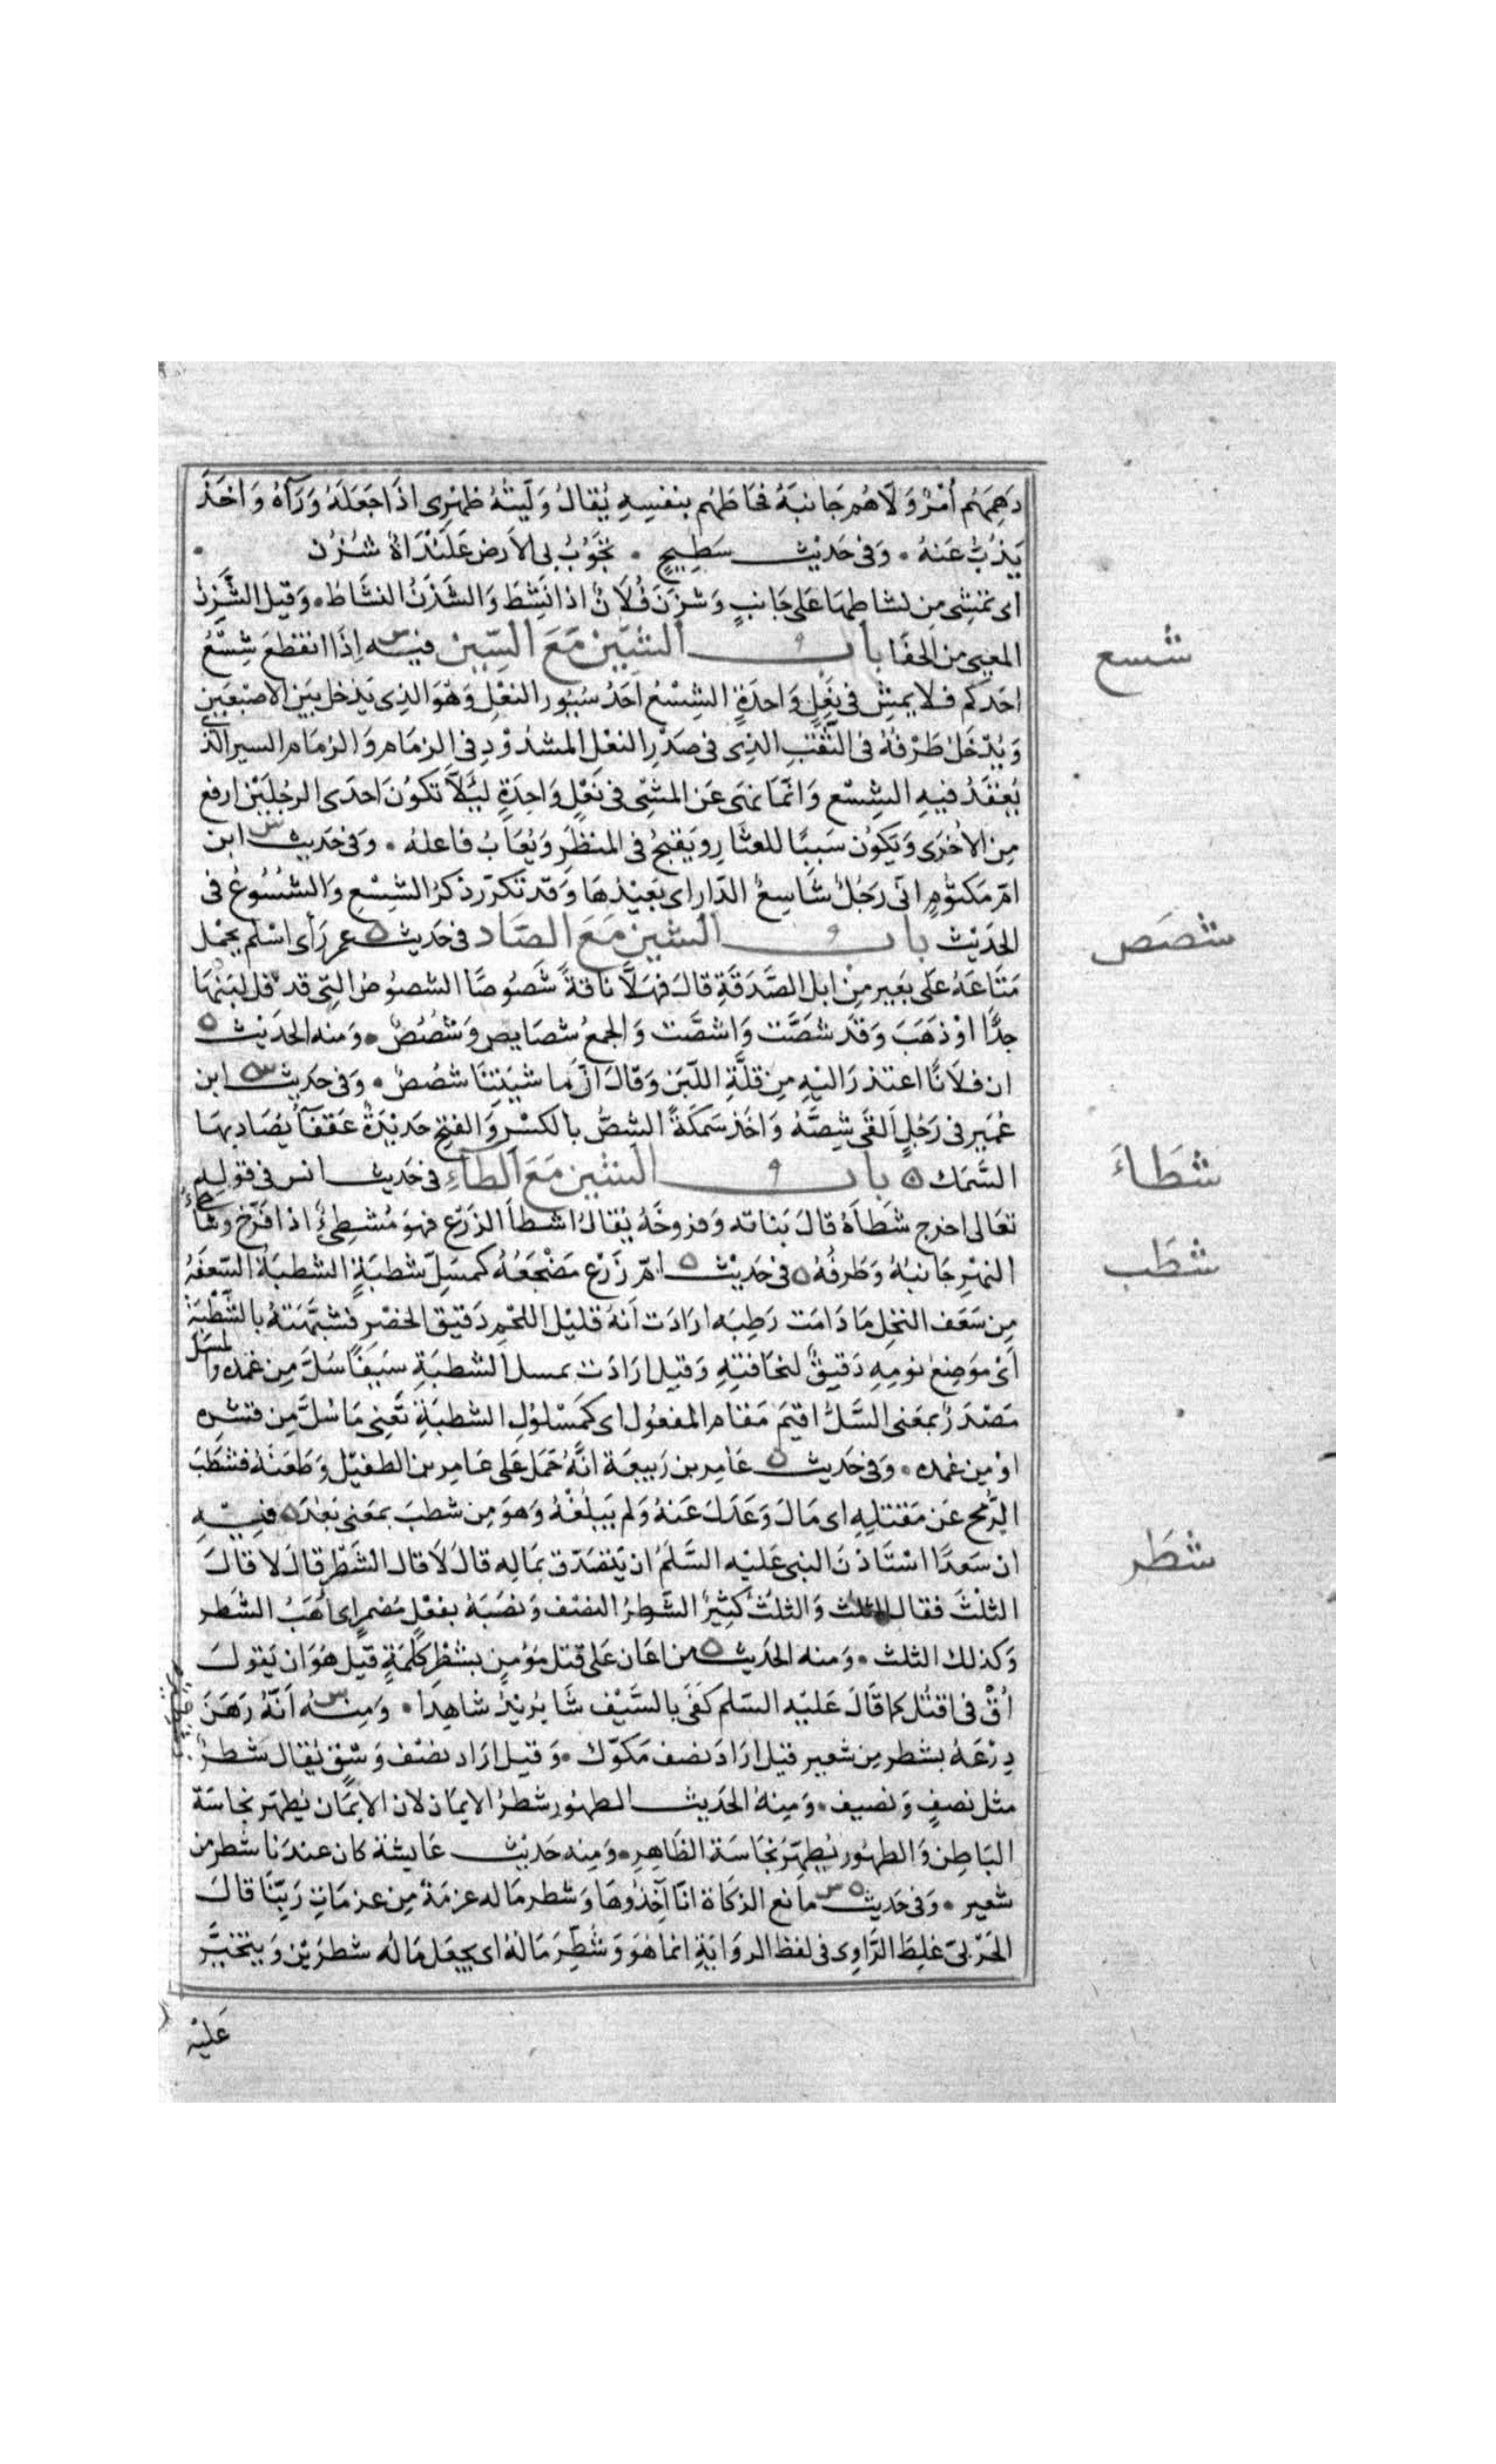 دَهِمَهُم أَمْرٌ وَلَّاهُم جَانبَهُ فحَاطَهُم بنفسِهِ يُقالُ وَلَّيتُهُ ظَهْرِى اذَا جَعَلَهُ وَرَآهُ وَاخَذَ
يَذُبُّ عَنهُ وَفى حَدِيْث سَطِيحٍ تجُوبُ بى الأرضَ عَلَنْدَاةٌ شُزُن
اى تمشِى مِن نشاطِهَا عَلى جَانبٍ وَشزِنَ فُلَانٌ اذا نَشِطَ وَالشَّزَنُ النشَاطُ وَقيل الشَّزِنُ
المعيى من الحفَا باب الشين مَعَ السِّين فيه س اِذَا انقطعَ شِسْعُ
احَدكم فلا يمشِ فى نَعْلٍ وَاحدَةٍ الشِسْعُ احَدُ سُيُور النعْلِ وَهوَ الذِى يَدْخل بَيَن الاصْبَعَين
وَيُدْخَلُ طَرفُهُ فى الثَّقْبِ الذِى فى صَدْرِ النعْل المشدُوْدِ فى الزمَام وَالزمَام السير الذى
يُعْقَدُ فيهِ الشِسْع وَانمَا نهىَ عَن المشْىِ فى نَعْلٍ وَاحِدَةٍ ليَلَّا تكونَ احدَى الرجْلَيْن ارفع
مِن الأخرَى وَيَكُون سَبَبًا للعثَارِ وَيَقبحُ فى المنظَرِ وَيُعَابُ فاعلهُ وَفى حَدِيث س ابن
امّ مَكتوُمٍ انّى رَجُلٌ شَاسِعُ الدّارِ اى بَعِيْدُهَا وَقَد تكرّر ذكرُ الشِّسْعِ وَالشُسُوعُ فى
الحَدِيْث باب الشين مَعَ الصَّاد فى حَدِيث ه عمر رَأى اسْلم يَحْمل
مَتَاعَهُ عَلى بَعيرٍ مِنْ ابل الصَّدَقَةِ قالَ فهَلَّا ناقةً شَصُوصًا الشصوُصُ التِى قد قلّ لبَنُهَا
جدًّا اوْ ذَهَبَ وَقَد شَصَّت وَاشصَّت وَالجمعُ شصَايص وَشُصُصٌ وَمنه الحَدِيث ه
ان فلَانًا اعتذرَ اليهِ مِن قلَّةِ اللّبَن وَقالَ انّ مَا شيَتنَا شُصُصٌ وَفى حَدِيث ه س ابن
عُمَير فى رَجُلٍ اَلقَى شِصَّهُ وَاخَذ سَمَكَةً الشصُّ بالكسْرِ وَالفتحِ حَدِيْدَةٌ عَقفَآ يُصَاد بهَا
السَّمَك ه باب الشين مَعَ الطآءِ فى حَدِيث انس فى قولِهِ
تعَالى اخرج شَطأَهُ قالَ نَبَاته وَفروخَهُ يُقالُ اشطأَ الزرْع فهوَ مُشطِئٌ اذا فرّخ وَشاطئُ
النهْرِ جَانبُهُ وَطَرفُهُ ه فى حَدِيْث ه امّ زَرْع مَضْجَعُهُ كمسَلّ شطبَةٍ الشطبَةُ السَّعَفَهُ
مِن سَعَف النخلِ مَا دَامَت رَطِبَه ارَادَت اَنهُ قليْل اللحْمِ دَقيق الخصْر فشبَّهَتهُ بالشَّطْبَهْ
اَىْ مَوَضِعُ نومِهِ دَقيقٌ لنحَافتهِ وَقيل ارَادَت بمسل الشطبَةِ سَيفًا سُلَّ مِن غمده وَالمسَلّ
مَصْدَرٌ بمعَنى السَّلّ اقيمَ مَقَام المفعُول اى كمَسْلوُلِ الشطبَةِ تَعنِى مَا سُلَّ مِن قشره
اوْ مِن غمده وَفى حَدِيث ه عَامِر بن رَبيعَة انَّهُ حَمَل عَلى عَامِر بن الطفيْل وَطَعَنَهُ فشطَبَ
الرُّمح عَن مَقتلِهِ اى مَالَ وَعَدَلَ عَنهُ وَلم يَبلُغْهُ وَهوَ مِن شطَبَ بمعَنى بَعُدَ ه فيهِ
ان سَعدًا اسْتَاذَنَ النبى عَليْه السَّلَمُ ان يَتصَدّق بمَالِه قالَ لَا قال الشَّطْرَ قالَ لا قالَ
الثلثَ فقال الثلث وَالثلثُ كثيرٌ الشَّطرُ النصْف وَنصَبَهُ بفعْلٍ مُضمرٍ اى اَهَبُ الشَطر
وَكذلكَ الثلث وَمنه الحَدِيث ه من اعَان عَلى قتل مؤمنٍ بشَطْرِ كَلمَةٍ قيْل هُوَ ان يَقولَ
اُقْ فى اقتُل كمَا قالَ عَليْه السّلم كفَى بالسَّيْف شَا يُريْدُ شاهِدَا وَمِنهُ س اَنَّهُ رَهَنَ
دِرْعَهُ بشطرٍ مِن شعير قيل ارَادَ نصف مَكوّك وَقيل ارَاد نصْف وَسْقٍ يُقال شطرٌ
مثل نصفٍ وَنصيف وَمِنهُ الحَدِيث الطهُور شطرُ الايمَان لان الايمَان يُطهّر نجَاسَة
البَاطِن وَالطهُور يُطهِّرُ نجَاسَة الظَاهِرِ وَمِنه حَدِيْث عَايشة كان عندَنا شطر من
شعير وَفى حَدِيث ه س مانع الزكَاة انّا آخذُوهَا وَشطر مَاله عزمَةٌ مِن عزمَاتِ رَبّنَا قالَ
الحَرْبىّ غلِطَ الرَّاوِى فى لفظ الروَايَةِ انما هُوَ وَشُطِّرَ مَالُهُ اى يجعَل مَالُه شطرَيْن وَيتخيّر
عَليْه
شسع
شصَص
شطَاءَ
شطَب
شطَر